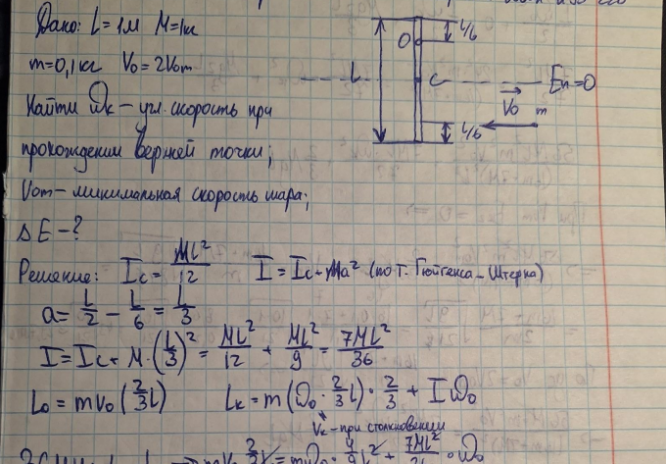 Дано: L=1м M=1кг
m=0,1кг V₀=2V₀m
Найти ω̄ₖ – угл. скорость при
прохождении верхней точки;
V₀m – минимальная скорость шара;
ΔE – ?
L/6
O
L
C
Eп=0
V₀ m
L/6
Решение: Ic = ML²/12 I = Ic + Ma² (по т. Гюйгенса – Штерна)
a = L/2 - L/6 = L/3
I = Ic + M·(L/3)² = ML²/12 + ML²/9 = 7ML²/36
L₀ = mV₀(2/3 L) Lₖ = m(ω₀·2/3 L)·2/3 + Iω₀
Vₖ – при столкновении